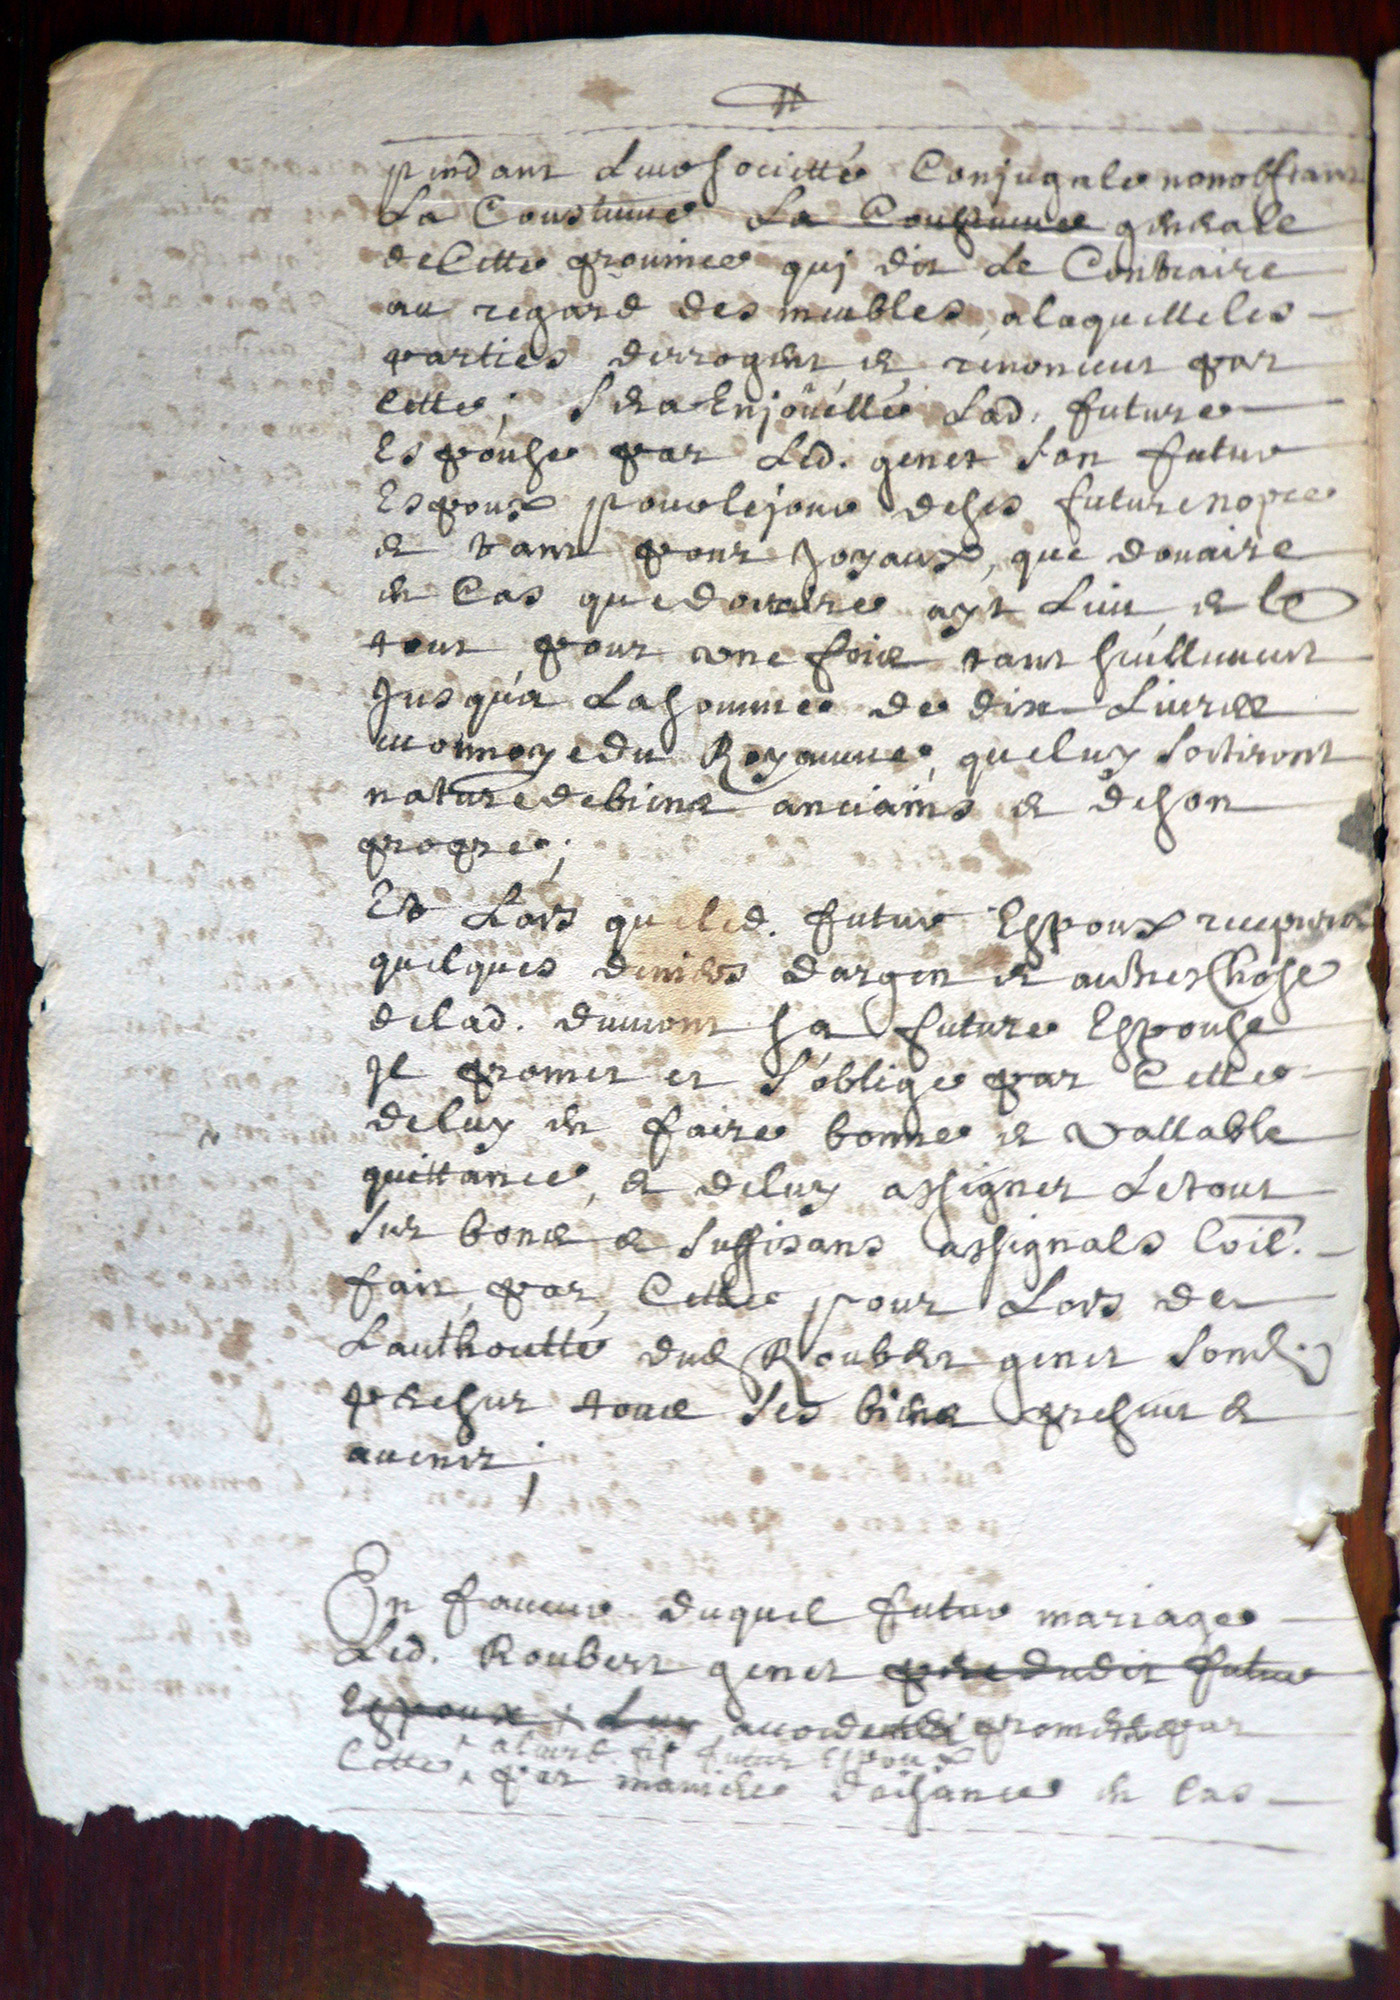 pendant Leur societté Conjugale nonobstant
La Coustume La Coustume generale
de Cette province quj dit Le Contraire
au regard des meubles, a laquelle les
parties derrogent et renoncent par
Cette; Sera Enjoüellée Lad. future
Espouse par Led. genet son futur
Espoux pour le jour de ses future nopce
et tant pour Joyaux, que douaire
en Cas que douaire ayt Lieu et le
tout pour vne fois tant seullement
Jusqu'a La somme de dix Liures
monnoye du Royaume, que luy sortiront
nature de biens anciains et de son
propre;
Et Lors que led. futur Espoux recepura
quelques deniers dargen et autres Chose
de lad. dumont sa future Espouse
Jl promet et s'oblige par Cette
de luy en faire bonne et vallable
quittance, et de luy assigner Le tout
sur bons et suffisans assignals Coe.
fait par Cette pour Lors de
Lauthoritté dud Roubert genet son
pere sur tous ses biens presens et
auenir;
En faueur duquel futur mariage
Led. Roubert genet pere dudit futur
Espoux Luy accorde promet par
a sond. fil futur Espoux
Cette par maniere daisance en Cas